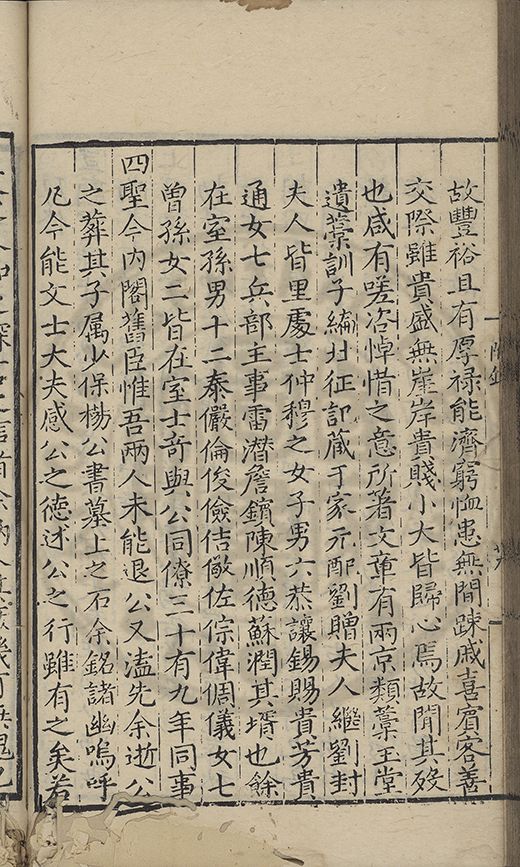 故豐裕且有厚禄能濟窮恤患無間踈戚喜賔客善
交際雖貴盛無崖岸貴賤小大皆歸心焉故聞其殁
也咸有嗟咨悼惜之意所著文章有兩京類藁玉堂
遺藁訓子編北征記藏于家元配劉贈夫人繼劉封
夫人皆里處士仲穆之女子男六恭讓錫賜貴芳貴
通女七兵部主事雷潜詹鑌陳順德蘇潤其壻也餘
在室孫男十二泰儼倫俊儉佶敬佐倧偉倜儀女七
曽孫女二皆在室士竒與公同僚三十有九年同事
四聖今内閣舊臣惟吾兩人未能退公又溘先余逝公
之葬其子属少保楊公書墓上之石余銘諸幽嗚呼
凡今能文士大夫感公之德述公之行雖有之矣若